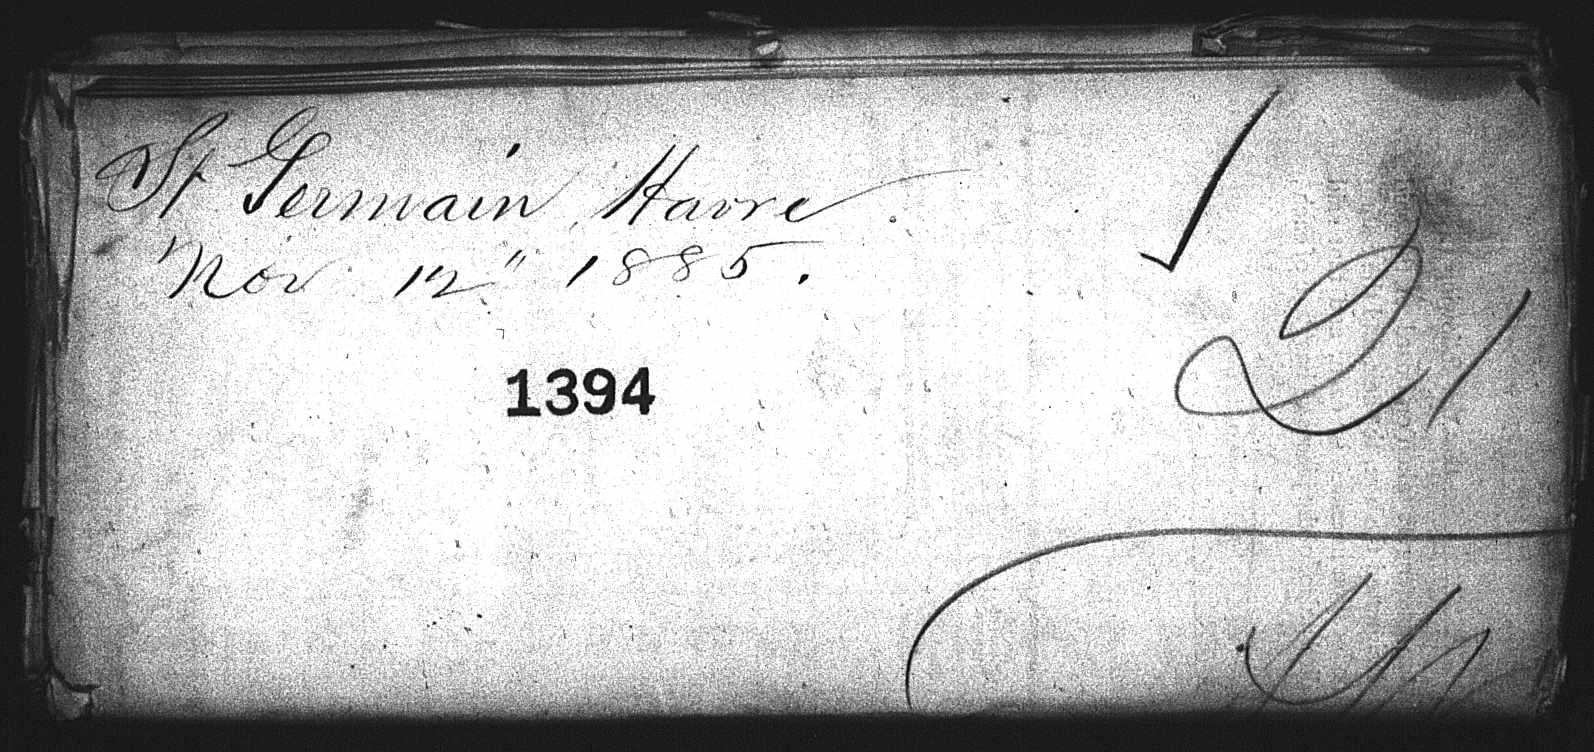 St Germain Havre
Nov 12" 1885.
1394
21